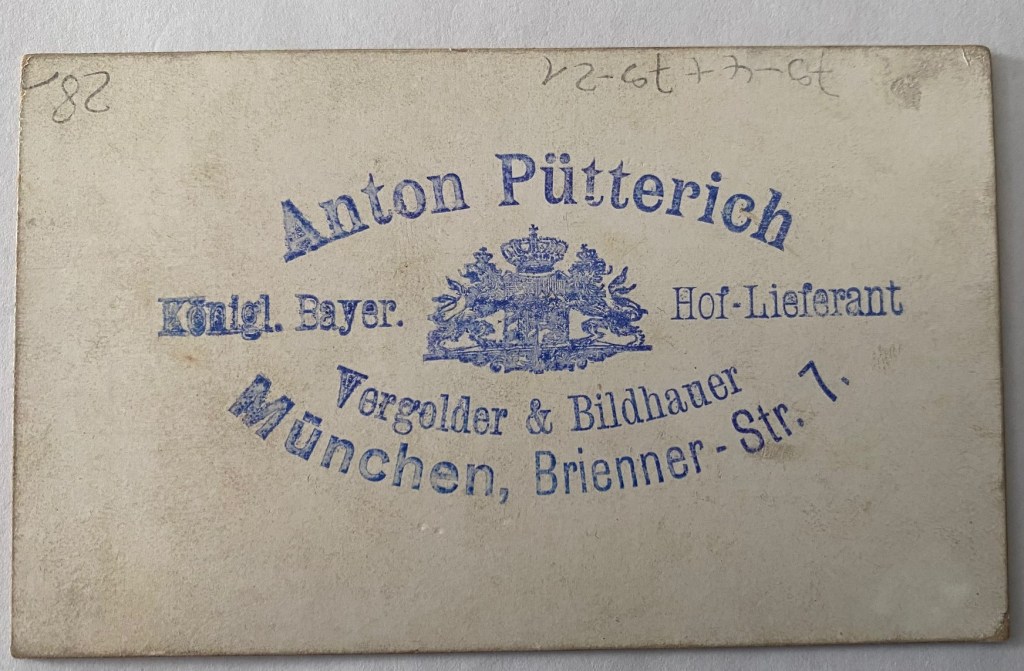 Anton Pütterich
Königl. Bayer. Hof-Lieferant
Vergolder & Bildhauer
München, Brienner-Str. 7.